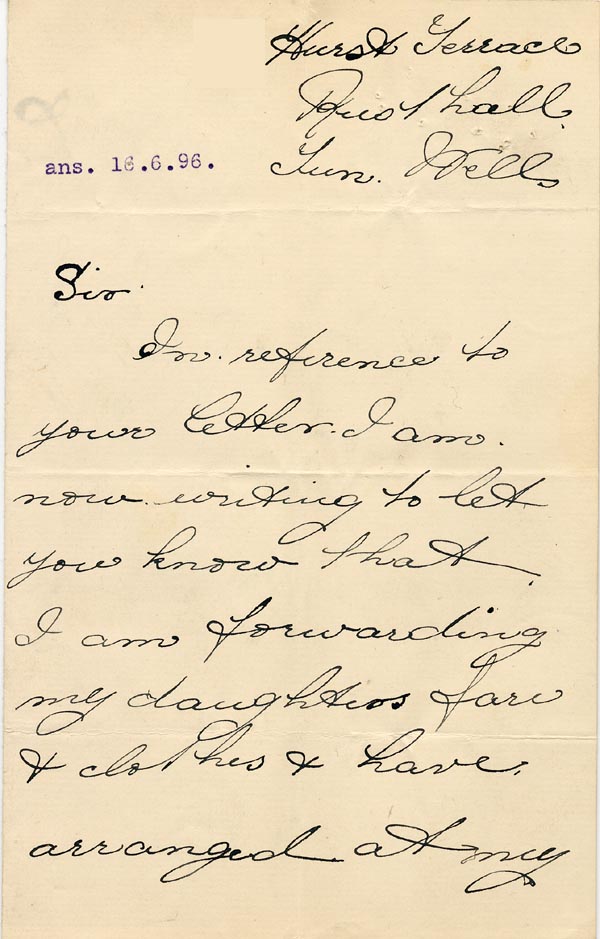 Hurst Terrace
Rusthall.
Tun. Wells
ans. 16.6.96.
Sir.
In. reference to
your letter. I am.
now writing to let
you know that
I am forwarding
my daughters fare
& clothes & have.
arranged at my